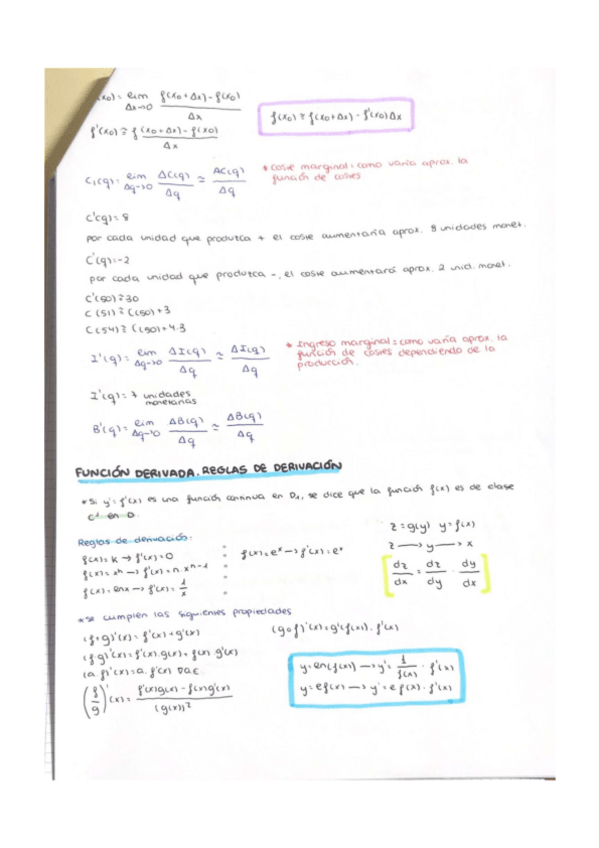 (x₀) = lim Δx→0 f(x₀+Δx) - f(x₀) / Δx
f'(x₀) ≅ f(x₀+Δx) - f(x₀) / Δx
f(x₀) ≅ f(x₀+Δx) - f'(x₀)Δx
C₁(q) = lim Δq→0 ΔC(q) / Δq ≅ ΔC(q) / Δq
* Coste marginal = como varia aprox. la
función de costes
C'(q) = 8
por cada unidad que produzca + el coste aumentaría aprox. 8 unidades monet.
C'(q) = -2
por cada unidad que produzca -, el coste aumentará aprox. 2 unid. monet.
C'(50) ≅ 30
C(51) ≅ C(50) + 3
C(54) ≅ C(50) + 4·3
I'(q) = lim Δq→0 ΔI(q) / Δq ≅ ΔI(q) / Δq
* Ingreso marginal = como varía aprox. la
función de costes dependiendo de la
producción.
I'(q) = 7 unidades
monetarias
B'(q) = lim Δq→0 ΔB(q) / Δq ≅ ΔB(q) / Δq
FUNCIÓN DERIVADA. REGLAS DE DERIVACIÓN
* Si y' = f'(x) es una función continua en D₁, se dice que la función f(x) es de clase
C¹ en D.
Reglas de derivación:
f(x) = K → f'(x) = 0
f(x) = xⁿ → f'(x) = n xⁿ⁻¹
f(x) = lnx → f'(x) = 1/x
f(x) = eˣ → f'(x) = eˣ
z = g(y) y = f(x)
z → y → x
dz/dx = dz/dy · dy/dx
* Se cumplen las siguientes propiedades
(f+g)'(x) = f'(x) + g'(x)
(f·g)'(x) = f'(x)·g(x) + f(x)·g'(x)
(a·f)'(x) = a·f'(x) ∀a∈
(f/g)'(x) = f'(x)g(x) - f(x)g'(x) / (g(x))²
(g∘f)'(x) = g'(f(x))·f'(x)
y = ln(f(x)) → y' = 1/f(x) · f'(x)
y = e f(x) → y' = e f(x) · f'(x)